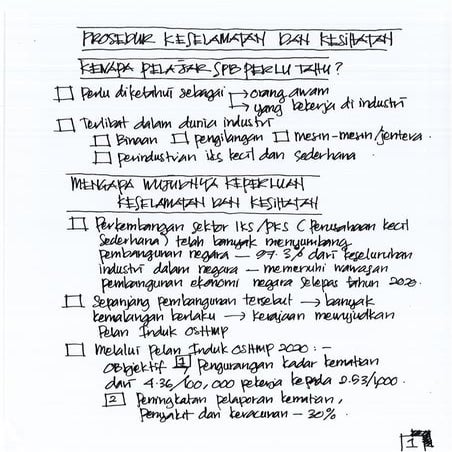 PROSEDUR KESELAMATAN DAN KESIHATAN
KENAPA PELAJAR SPB PERLU TAHU?
Perlu diketahui sebagai → orang awam
→ yang bekerja di industri
Terlibat dalam dunia industri
Binaan pengilangan mesin-mesin/jentera.
perindustrian iks kecil dan sederhana.
MENGAPA WUJUDNYA KEPERLUAN
KESELAMATAN DAN KESIHATAN
Perkembangan sektor IKS/PKS (Perusahaan kecil
Sederhana) telah banyak menyumbang
pembangunan negara – 97.3% dari keseluruhan
industri dalam negara – memenuhi wawasan
pembangunan ekonomi negara selepas tahun 2020.
Sepanjang pembangunan tersebut → banyak
kemalangan berlaku → kerajaan mewujudkan
Pelan Induk OSHMP
Melalui Pelan Induk OSHMP 2020 : –
Objektif 1 → Pengurangan kadar kematian
dari 4.36/100,000 pekerja kepada 2.53/1,000.
2 Peningkatan pelaporan kematian,
Penyakit dan keracunan – 30%.
1